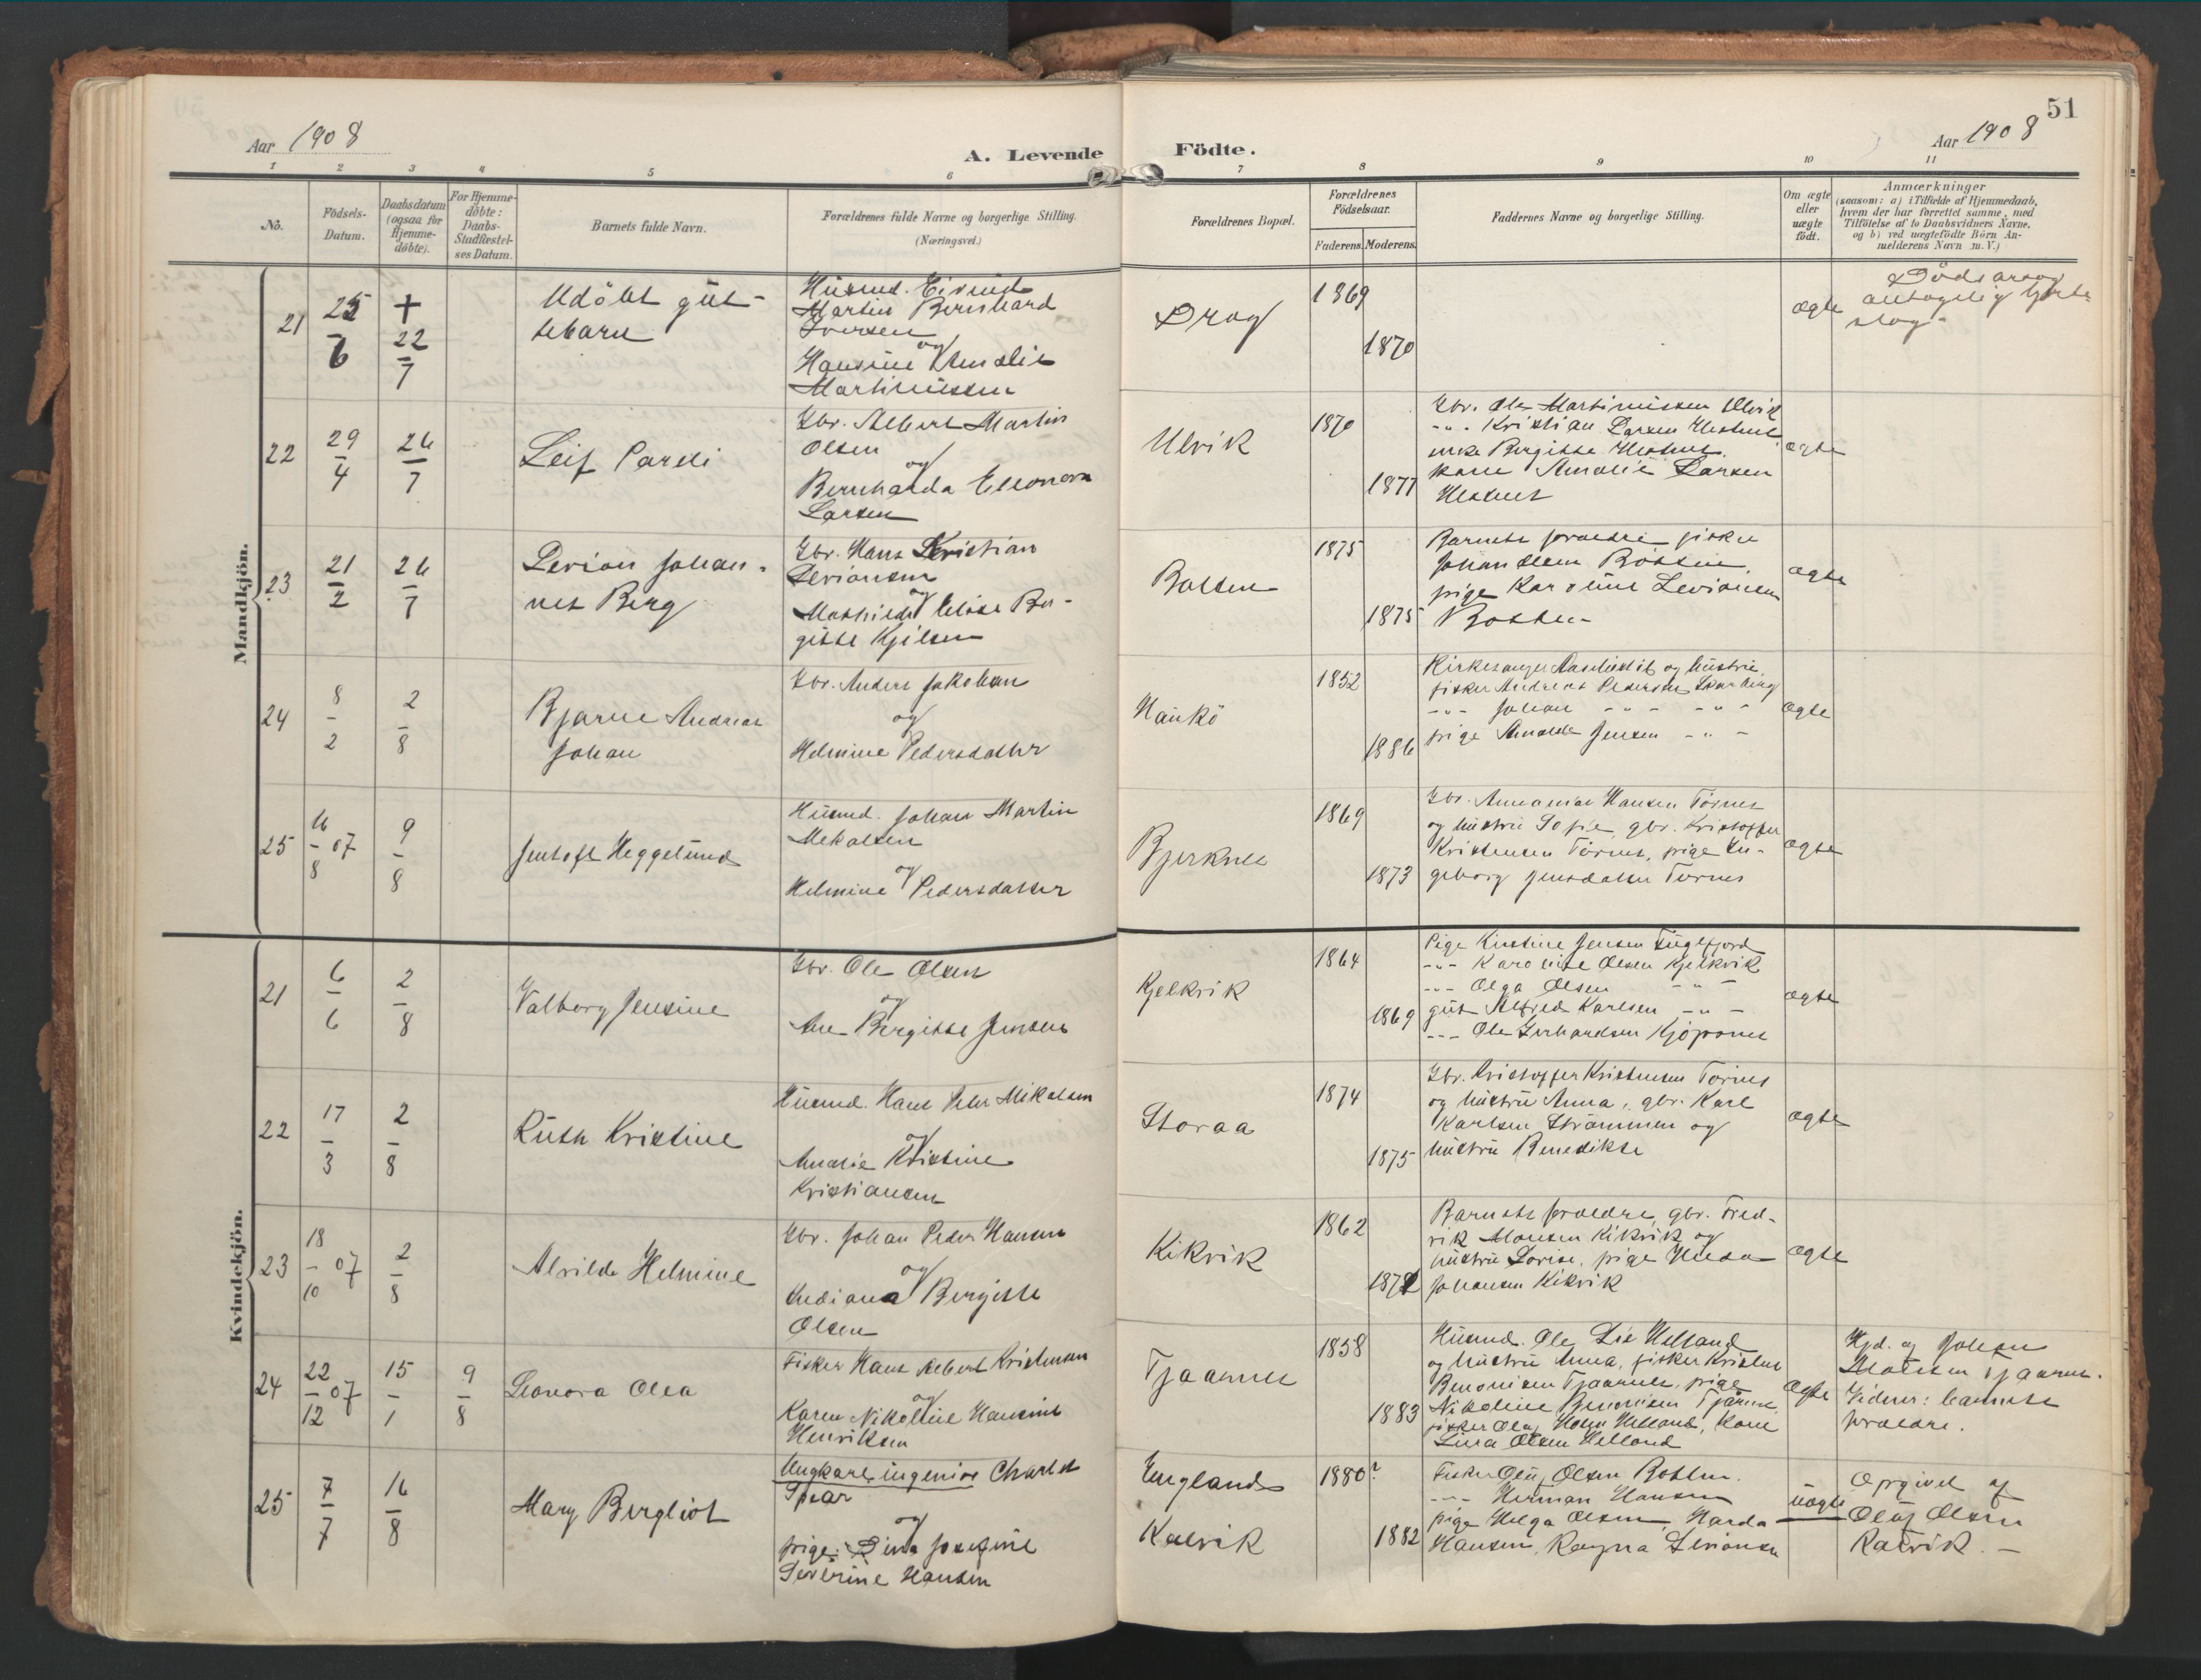 51
Aar 1908
A. Levende
Födte.
Aar 1908
1 2 3 4 5 6 7 8 9 10 11
No.
Födsels-
Datum.
Daabsdatum
(ogsaa for
Hjemme-
döbte).
For Hjemme-
döbte:
Daabs-
Stadfæstel-
ses Datum.
Barnets fulde Navn.
Forældrenes fulde Navne og borgerlige Stilling.
(Næringsvei.)
Forældrenes Bopæl.
Forældrenes
Födselsaar.
Faderens. Moderens.
Faddernes Navne og borgerlige Stilling.
Om ægte
eller
uægte
født.
Anmærkninger
(saasom: a) i Tilfælde af Hjemmedaab,
hvem der har forrettet samme, med
Tilföielse af to Daabsvidners Navne,
og b) ved uægtefödte Börn An-
melderens Navn m. V.)
Mandkjön.
21
25/6
+ 22/7
Udöbt gut-
tebarn
Husmd. Eivind
Martin Bernhard
Iversen
og
Hansine Amalie
Martinussen
Drag
1869
1870
ægte
Dödsarsag
antagelig hjerte
slag -
22
29/4
26/7
Leif Pareli
Gbr. Albert Martin
Olsen
og
Bernharda Eleonora
Larsen
Ulvik
1870
1877
Gbr. Ole Martinussen Ulvik
-"- Kristian Larsen
enke Birgitte
kone Amalie Larsen
ægte
23
21/2
26/7
Levion Johan-
nes Berg
Gbr. Hans Kristian
Levionsen
og
Mathilde Elise Ber-
gitte Kjilsen
Botten
1875
1875
Barnets forældre fisker
Johan Olsen Botten,
pige Karoline Levionsen
Botten
ægte
24
8/2
2/8
Bjarne Andreas
Johan
Gbr. Anders Jakobsen
og
Helmine Pedersdatter
Haukö
1852
1886
Kirkesanger og hustru
fisker Andreas Pedersen Skarberg
-"- Johan -"- -"-
pige Amalie Jensen -"-
ægte
25
16/8 - 07
9/8
Jentoft Heggelund
Husmd. Johan Martin
Mekalsen
og
Helmine Pedersdatter
Bjerknes
1869
1873
Gbr. Annanias Hansen Törnes
og hustru Sofie, gbr. Kristoffer
Kristensen Törnes, pige In-
geborg Jensdatter Törnes
ægte
Kvindekjön.
21
6/6
2/8
Valborg Jensine
Gbr. Ole Olsen
og
Ane Birgitte Jensen
Kjelkvik
1864
1869
Pige Kirstine Jensen Fuglfjord
-"- Karoline Olsen Kjelkvik
-"- Olga Olsen -"-
gut Alfred Karlsen -"-
-"- Ole Gerhardsen Kjöpsnes
ægte
22
17/3
2/8
Ruth Kristine
Husmd. Hans Peter Mikalsen
og
Amalie Kristine
Kristiansen
Storaa
1874
1875
Gbr. Kristoffer Kristensen Törnes
og hustru Anna, gbr. Karl
Karlsen Strömmen og
hustru Benedikte
ægte
23
18/10 - 07
2/8
Alvilde Helmine
Gbr. Johan Peder Hansen
og
Indiana Bergitte
Olsen
Kikvik
1862
Barnets forældre, gbr. Fred-
rik Monsen Kikvik og
hustru Lovise, pige Hilda
Johansen Kikvik
ægte
24
22/12 - 07
15/1
9/8
Leonora Olea
Fisker Hans Albert Kristensen
og
Karen Nikoline Hansine
Henriksen
Tjaarnes
1858
1883
Husmd. Ole Lie Helland
og hustru Anna, fisker Kristen
Benonisen Tjaarnes, pige
Nikoline Benonisen Tjårnes,
fisker Olaf Holm Helland, kone
Lina Olsen Helland
ægte
Hjd. af Johan
Matisen Tjaarnes.
Vidner: barnets
forældre.
25
7/7
16/8
Mary Bergliot
Ungkarl, ingeniør Charles
Spear
og
pige: Lina Josefine
Severine Hansen
England
Kalvik
1880?
1882
Fisker Oluf Olsen Botten.
-"- Herman Hansen
pige Helga Olsen, Harda
Hansen, Ragna Levionsen
uægte
Opgivet af
Oluf Olsen
Kalvik. -